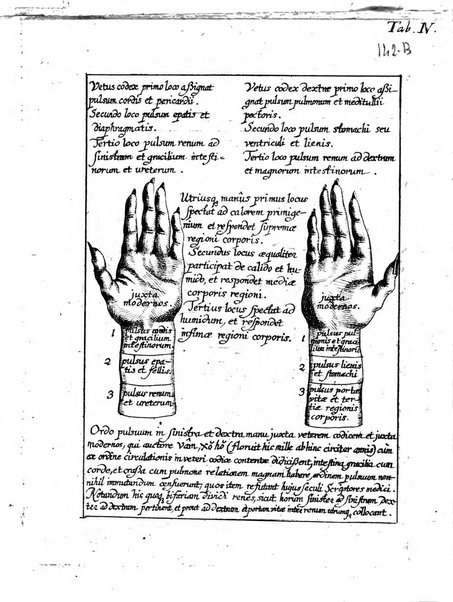 Tab. IV.
142-B
Vetus codex primo loco aßignat
pulsum cordis et pericardii.
Secundo loco pulsum epatis et
diaphragmatis.
Tertio loco pulsum renum ad
sinistram et gracilium intesti-
norum et ureterum.
Vetus codex dextræ primo loco aßi-
gnat pulsum pulmonum et meditullii
pectoris.
Secundo loco pulsum stomachi seu
ventriculi et lienis.
Tertio loco pulsum renum ad dextram
et magnorum intestinorum.
Utriusq manûs primus locus
spectat ad calorem primige-
nium et respondet supremæ
regioni corporis.
Secundus locus æqualiter
participat de calido et hu-
mido, et respondet mediæ
corporis regioni.
Tertius locus spectat ad
humidum, et respondet
infimæ regioni corporis.
juxta
modernos.
1 pulsus cordis
et gracilium
intestinorum
2 pulsus epa-
tis et fellis.
3 pulsus renum
et ureterum.
juxta
modernos.
1 pulsus pul-
monis et graci-
lium intestinoru
2 pulsus lienis
et stomachi
3 pulsus portæ
vitæ et ter-
tiæ regionis
corporis.
Ordo pulsuum in sinistra et dextra manu juxta veterem codicem et juxta
modernos, qui auctore Vâm, xŏ hŏ (floruit hic mille ab hinc circiter annis) cum
ex ordine circulationis in veteri codice contentæ didicißent, intestina gracilia cum
corde, et craßa cum pulmone relationem magnam habere, ordinem pulsuum non-
nihil immutandum censuerunt; quos item refutant hujus seculi Scriptores medici.
Notandum hic quoq bifariam dividi renes, sicut horum sinister ad sinistram dex-
ter ad dextram pertineat, et prout ad dextram portam vitæ inter renum utrumq collocant.